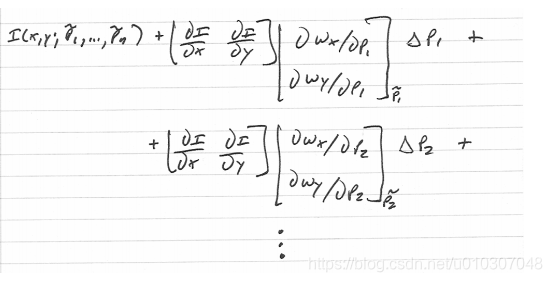 I(x,y; p̃₁,...,p̃ₙ) + [∂I/∂x ∂I/∂y] [∂wx/∂p₁ ∂wy/∂p₁]p̃₁ Δp₁ +
+ [∂I/∂x ∂I/∂y] [∂wx/∂p₂ ∂wy/∂p₂]p̃₂ Δp₂ +
⋮
https://blog.csdn.net/u010307048